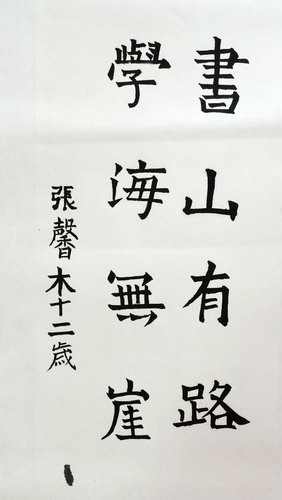 書山有路
學海無崖
張馨木十二歲